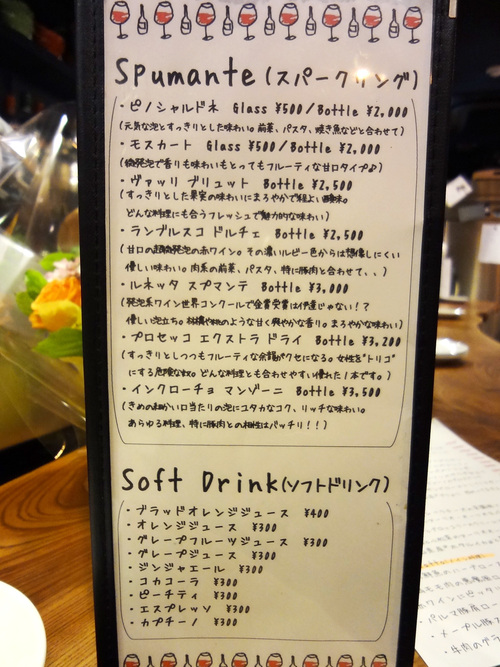 Spumante (スパークリング)
・ピノシャルドネ Glass ¥500/Bottle ¥2,000
(元気な泡とすっきりとした味わい。前菜、パスタ、焼き魚などと合わせて)
・モスカート Glass ¥500/Bottle ¥2,000
(微発泡で香りも味わいもとってもフルーティな甘口タイプ♪)
・ヴァッリ ブリュット Bottle ¥2,500
(すっきりとした果実の味わいにまろやかで程よい酸味。
どんな料理にも合うフレッシュで魅力的な味わい)
・ランブルスコ ドルチェ Bottle ¥2,500
(甘口の超微発泡の赤ワイン。その濃いルビー色からは想像しにくい
優しい味わい。肉系の前菜、パスタ、特に豚肉と合わせて、、)
・ルネッタ スプマンテ Bottle ¥3,000
(発泡系ワイン世界コンクールで金賞受賞は伊達じゃない!?
優しい泡立ち。林檎や桃のような甘く爽やかな香り。まろやかな味わい)
・プロセッコ エクストラ ドライ Bottle ¥3,200
(すっきりとしつつもフルーティな余韻がクセになる。女性を"トリコ"
にする危険な奴。どんな料理とも合わせやすい優れた1本です。)
・インクローチョ マンゾーニ Bottle ¥3,500
(きめの細かい口当たりの泡にユタカなコク、リッチな味わい。
あらゆる料理、特に豚肉との相性はバッチリ!!)
Soft Drink(ソフトドリンク)
・ブラッドオレンジジュース ¥400
・オレンジジュース ¥300
・グレープフルーツジュース ¥300
・グレープジュース ¥300
・ジンジャエール ¥300
・コカコーラ ¥300
・ピーチティ ¥300
・エスプレッソ ¥300
・カプチーノ ¥300